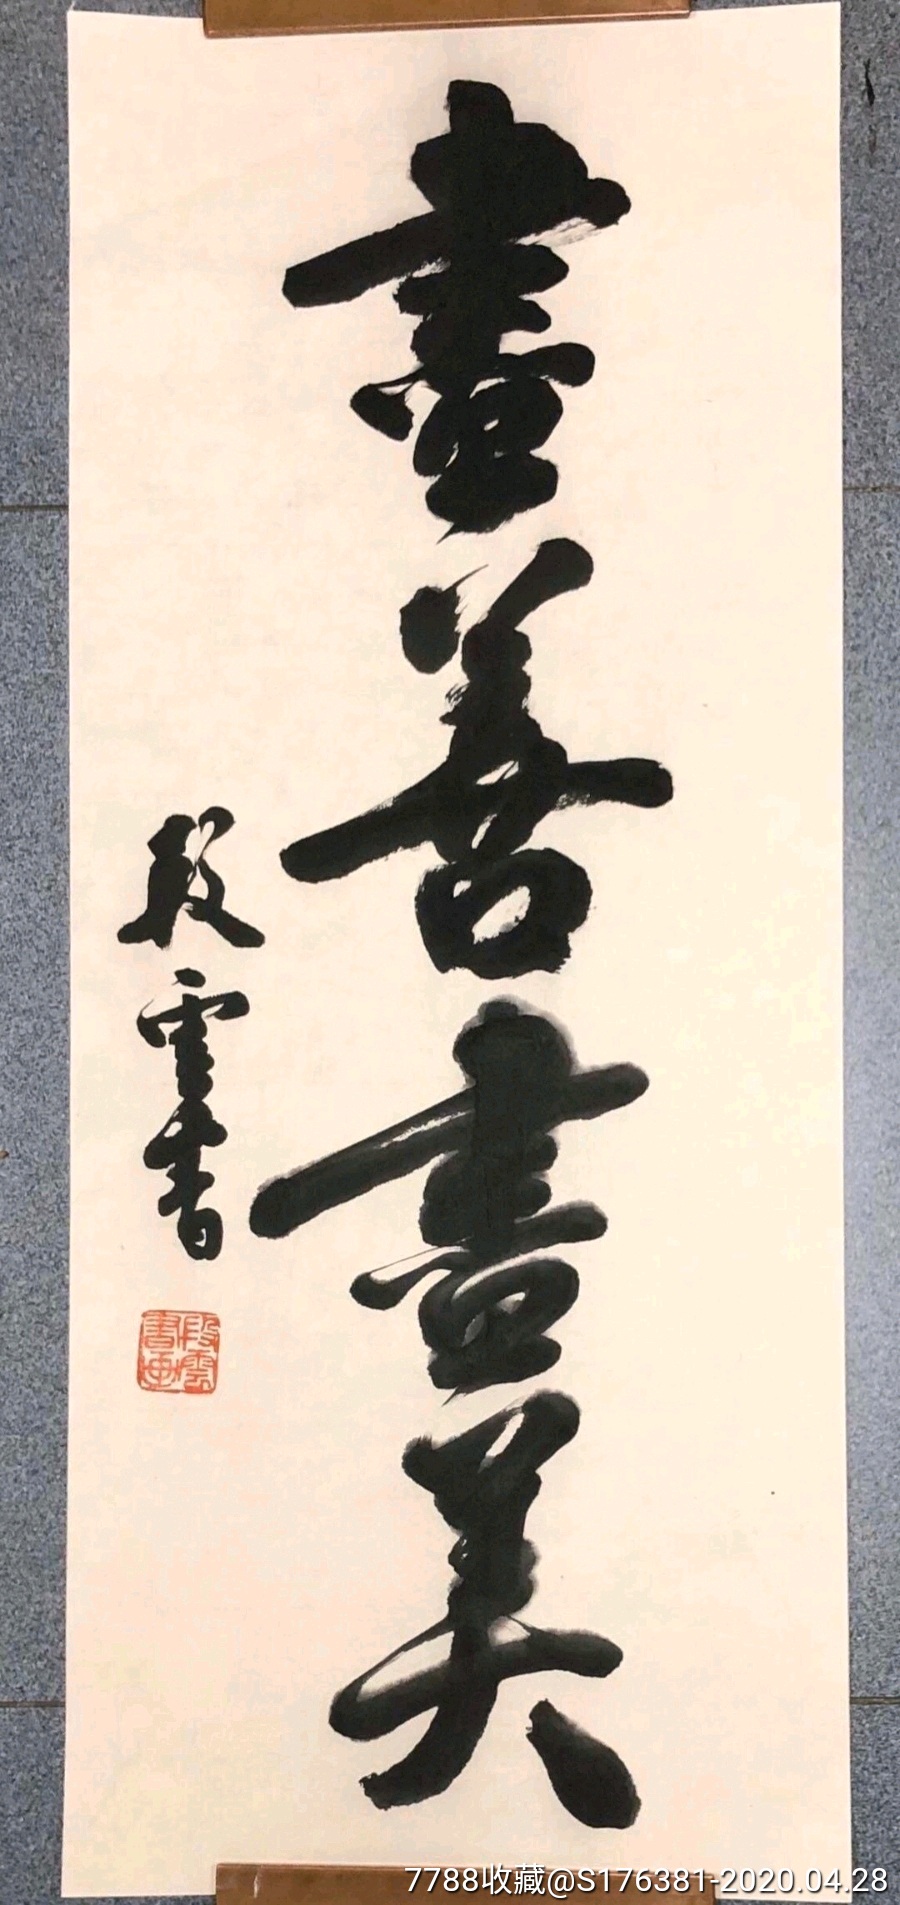 盡善盡美
段雲書
段雲
書画
7788收藏@S176381-2020.04.28